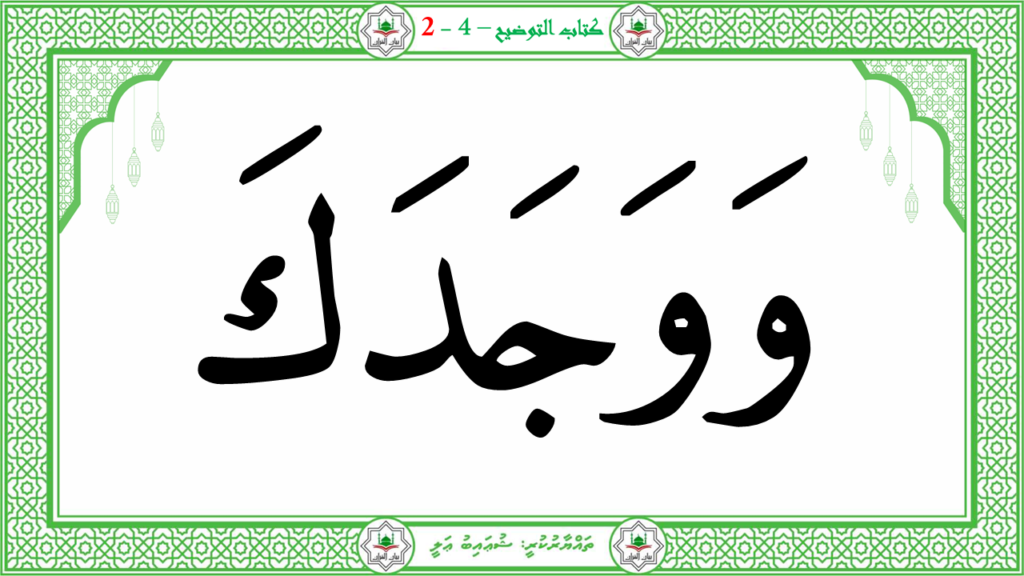 كتاب التوضيح – 4 - 2
وَوَجَدَكَ
ތައްޔާރުކުރީ: ޝުޢައިބު ޢަލީ